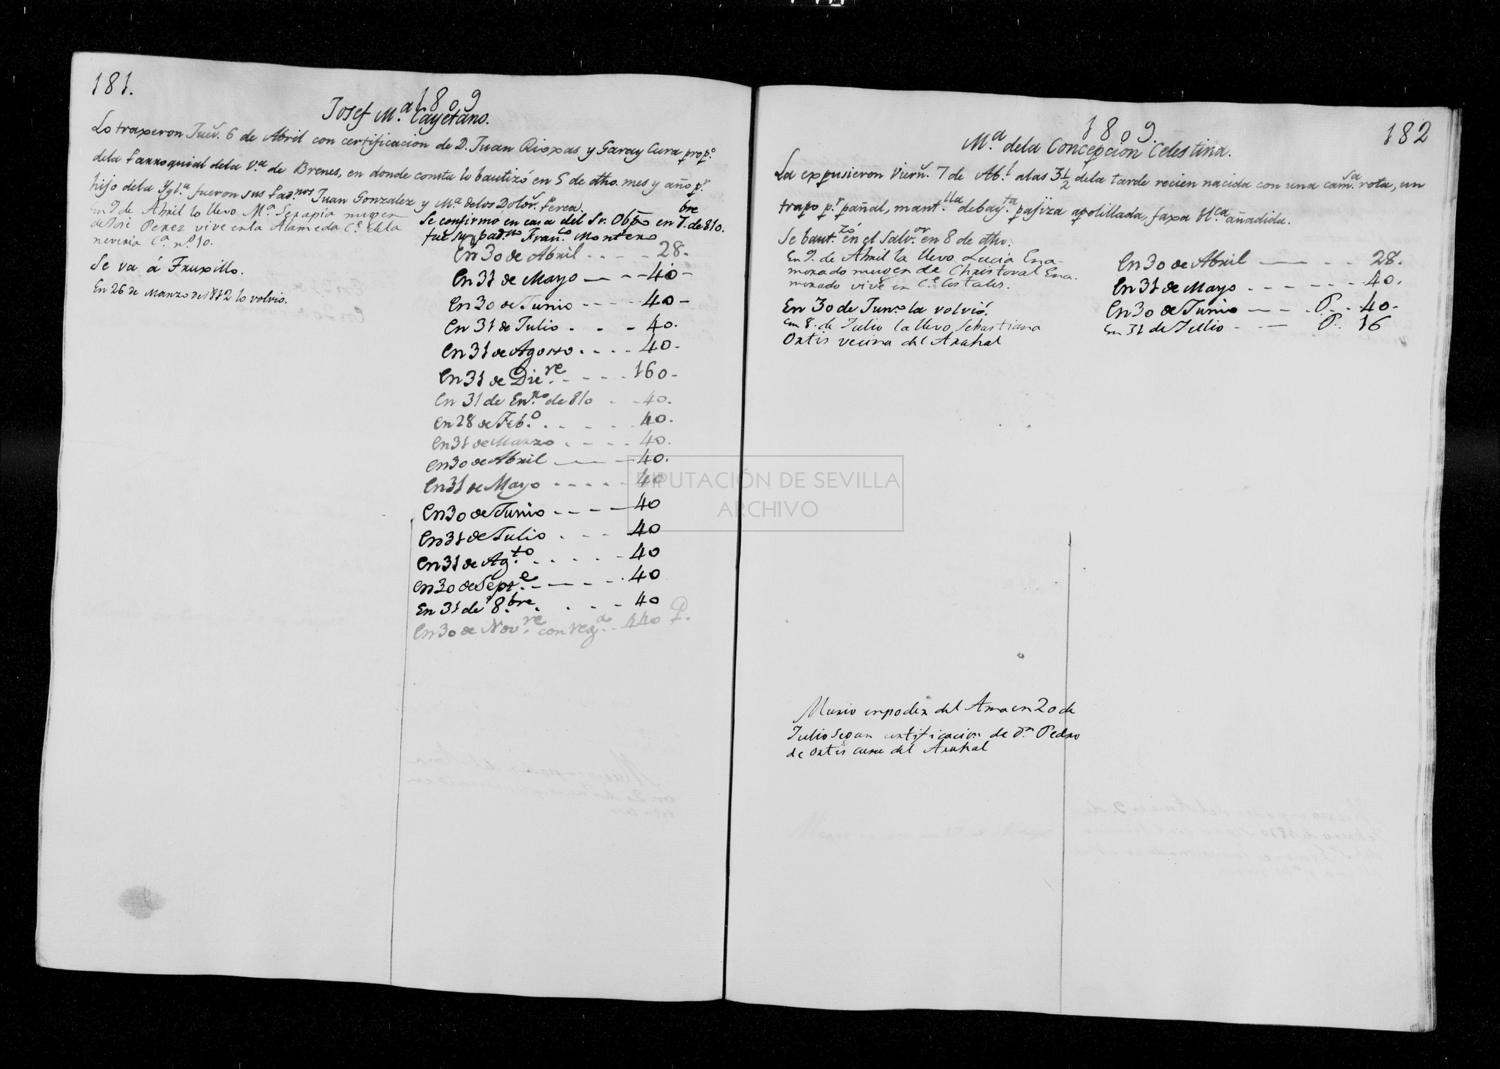 181.
1809
Josef M.ª Cayetano.
Lo traxeron Juev. 6 de Abril con certificacion de D. Juan Rioxas y Garay Cura prop.º
dela Parroquial dela V.ª de Brenes, en donde consta lo bautizó en 5 de dho. mes y año p.r
hijo dela Ygl.ª fueron sus Pad.nos Juan Gonzalez y M.ª delos Dolor.s Perea.
en 9 de Abril lo llevo M.ª Serapia muger
de José Perez vive en la Alameda C.ª de la
neveria C.ª n.º 10.
Se va á Truxillo.
En 26 de Marzo de 1812 lo volvio.
Se confirmo en casa del Sr. Obpo en 7.bre de 810.
fue su pad.no Fran.co Montero
En 30 de Abril . . . . 28.
En 31 de Mayo — - - 40-
En 30 de Junio - - - - 40-
En 31 de Julio . - - 40.
En 31 de Agosto . . . . 40-
En 31 de Dic.re - - - - 160-
En 31 de En.ro de 810 . - 40.
En 28 de Feb.º . - - - 40.
En 31 de Marzo . - - - 40
En 30 de Abril — — - 40.
En 31 de Mayo - - - - - 40
En 30 de Junio - - - — 40
En 31 de Julio . . - - 40
En 31 de Ag.to . . . . - 40
En 30 de Sept.e - — - - . 40
En 31 de 8.bre . . . - 40
En 30 de Nov.re con reg.ª . . 440 P.
1809
182
M.ª dela Concepcion Celestina.
La expusieron Viern. 7 de Ab.l alas 3½ dela tarde recien nacida con una cam.sa rota, un
trapo p.r pañal, mant.lla de bay.ta pajiza apolillada, faxa bl.ca añadida.
Se baut.zó en el Salv.or en 8 de dho.
En 9. de Abril la llevo Lucia Ena-
morado muger de Christoval Ena-
morado vive en C.e Costales.
En 30 de Jun.o la volvió.
en 8. de Julio la llevo Sebastiana
Ortis vecina del Arahal
En 30 de Abril — — - - 28.
En 31 de Mayo - - - - - - 40.
En 30 de Junio - — . P. . 40.
En 31 de Julio - - — P. 16
Murio en poder del Ama en 20 de
Julio segun certificacion de D.n Pedro
de Ortis cura del Arahal
DIPUTACIÓN DE SEVILLA
ARCHIVO